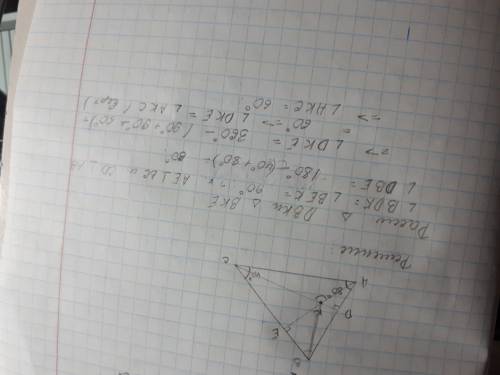 Решение:
Рассм △ DBK и △ BKE
∠ BDK = ∠ BEK = 90°, т.к. AE ⊥ BC и CD ⊥ AB
∠ DBE = 180° - (40° + 80°) = 60°
=> ∠ DKE = 360° - (90° + 90° + 60°) =
= 60° => ∠ DKE = ∠ AKC (верт)
=> ∠ AKC = 60°.
C
40°
A
80°
K
D
E
B